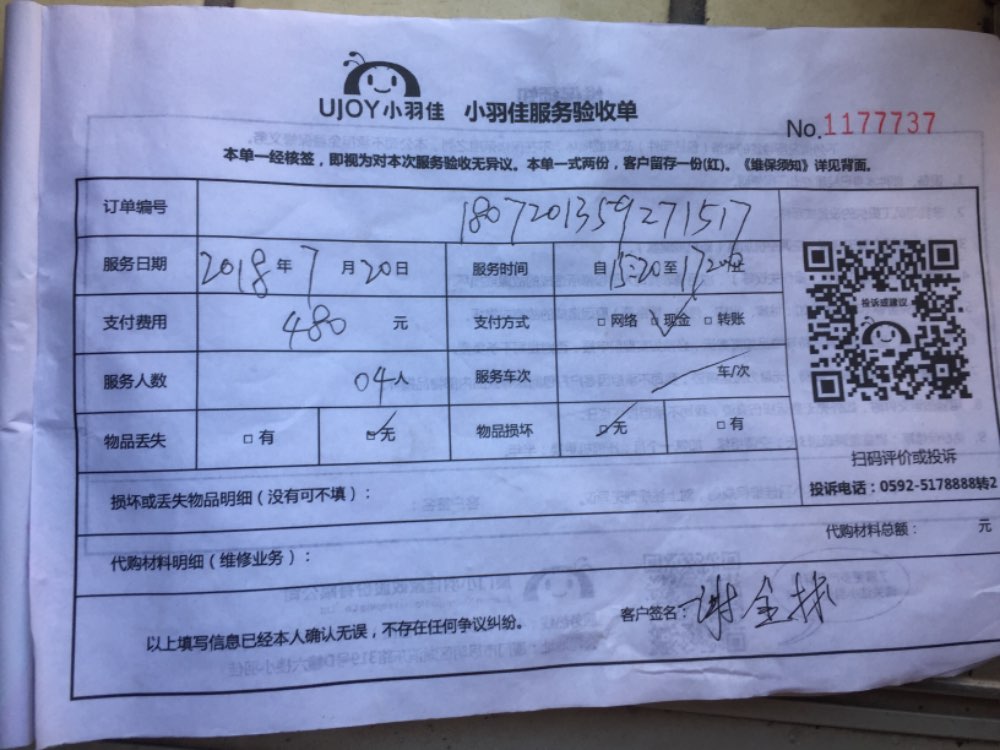 UJOY小羽佳 小羽佳服务验收单
No.1177737
本单一经核签，即视为对本次服务验收无异议。本单一式两份，客户留存一份(红)。《维保须知》详见背面。
订单编号 1807201359271517
服务日期 2018年7月20日 服务时间 自15:20至17:20止
支付费用 480 元 支付方式 □网络 □现金 □转账
服务人数 04人 服务车次 车/次
物品丢失 □有 □无 物品损坏 □无 □有
投诉或建议
扫码评价或投诉
投诉电话：0592-5178888转2
损坏或丢失物品明细（没有可不填）：
代购材料总额： 元
代购材料明细（维修业务）：
客户签名：谢金
以上填写信息已经本人确认无误，不存在任何争议纠纷。